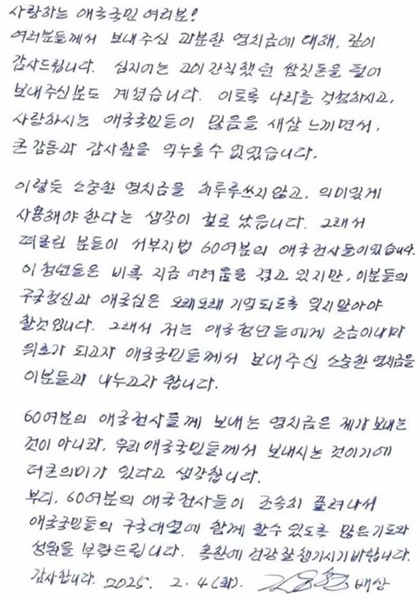 사랑하는 애국국민 여러분!
여러분들께서 보내주신 과분한 영치금에 대해, 깊이
감사드립니다. 심지어는 고이간직했던 쌈짓돈을 털어
보내주신분도 계셨습니다. 이토록 나라를 걱정하시고,
사랑하시는 애국국민들이 많음을 새삼 느끼면서,
큰감동과 감사함을 억누를수 없었습니다.
이렇듯 소중한 영치금을 허투루쓰지않고, 의미있게
사용해야 한다는 생각이 절로 났습니다. 그래서
떠올린 분들이 서부지법 60여분의 애국전사들이었습니다.
이청년들은 비록 지금 어려움을 겪고 있지만, 이분들의
구국정신과 애국심은 오래오래 기억되도록 잊지말아야
할것입니다. 그래서 저는 애국청년들에게 조금이나마
위로가 되고자 애국국민들께서 보내주신 소중한 영치금을
이분들과 나누고자 합니다.
60여분의 애국전사들께 보내는 영치금은 제가 보내는
것이 아니라, 우리애국국민들께서 보내시는 것이기에
더큰의미가 있다고 생각합니다.
부디, 60여분의 애국전사들이 조속히 풀려나서
애국국민들의 구국대열에 함께 할수 있도록 많은기도와
성원을 부탁드립니다. 혹한에 건강잘챙기시기바랍니다.
감사합니다. 2025. 2. 4(화). 배상